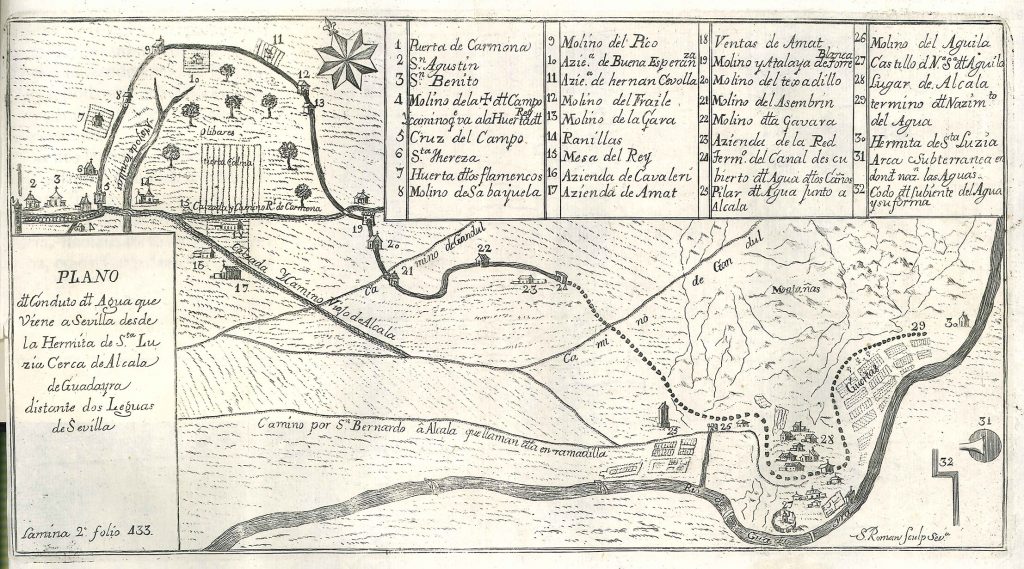 1 Puerta de Carmona
2 Sⁿ. Agustin
3 Sⁿ. Benito
4 Molino de la
camino q̃ va a la Huerta
5 Cruz del Campo
6 Sᵗᵃ Thereza
7 Huerta de los flamencos
8 Molino de Sabanjuela
9 Molino del Pico
10 Azieᵃ. de Buena Esperanᶻᵃ
11 Azieᵃ. de hernan Cevolla
12 Molino del Fraile
13 Molino de la Gara
14 Ranillas
15 Mesa del Rey
16 Azienda de Cavaleri
17 Azienda de Amat
18 Ventas de Amat
19 Molino y Atalaya de Torre Blanca
20 Molino del texadillo
21 Molino del Asembrin
22 Molino Gavara
23 Azienda de la Red
24 Termº. del Canal des cu
bierto Agua los Caños
25 Pilar Agua junto a
Alcala
26 Molino del Aguila
27 Castillo d Nᵃ Sᵃ Aguila
28 Lugar de Alcala
29 termino Nazimᵗᵒ
del Agua
30 Hermita de Sᵗᵃ Luzia
31 Arca Subterranea en
dond naz. las Aguas
32 Codo subiente del Agua
y su forma
9
10
11
12
13
8
7
Olibares
tierra calma
6
5
1 2 3
15 Calzada y Camino Rˡ. de Carmona
19
20
21
22
23
24
16
17
Calzada y Camino Viejo de Alcala
Camino de Gandul
Camino de Gandul
Montañas
29
30
Guertas
31
32
28
25
26
27
Camino por Sⁿ. Bernardo â Alcala que llaman en ramadilla
Rio Guadayra
PLANO
Conduto Agua que
Viene a Sevilla desde
la Hermita de Sᵗᵃ Lu
zia Cerca de Alcala
de Guadayra
distante dos Leguas
de Sevilla
Lamina 2ª folio 133.
S. Roman Sculp Sevª